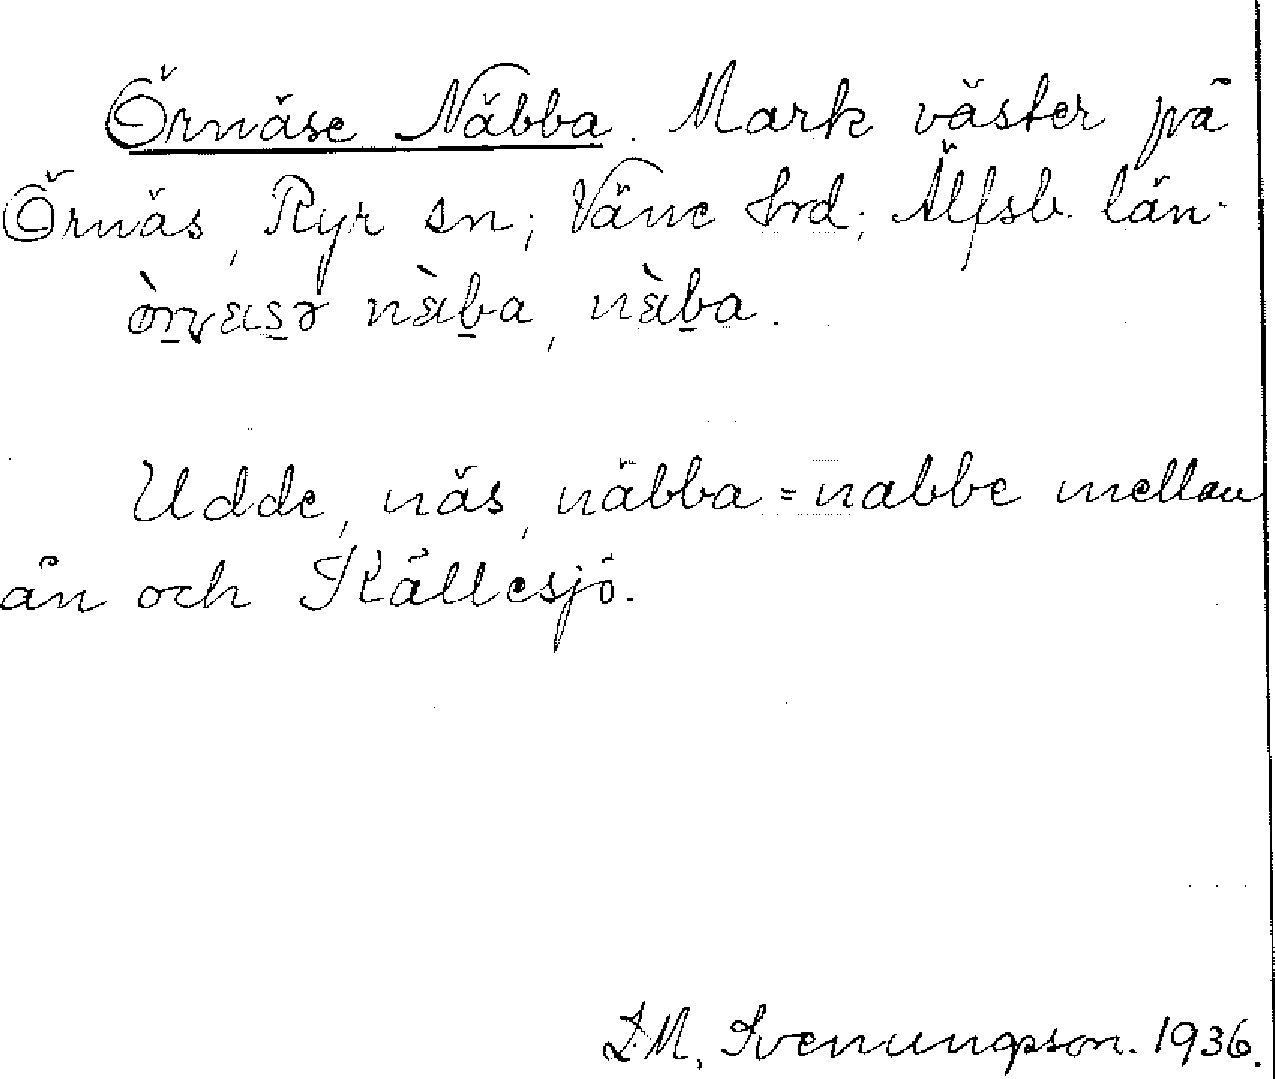 Örnäse Näbba. Mark väster på
Örnäs, Ryr sn; Väne hrd; Älfsb. län.
nàba, nàba.
Udde, näs, näbba = nabbe mellan
ån och Källesjö.
Svenungsson. 1936.